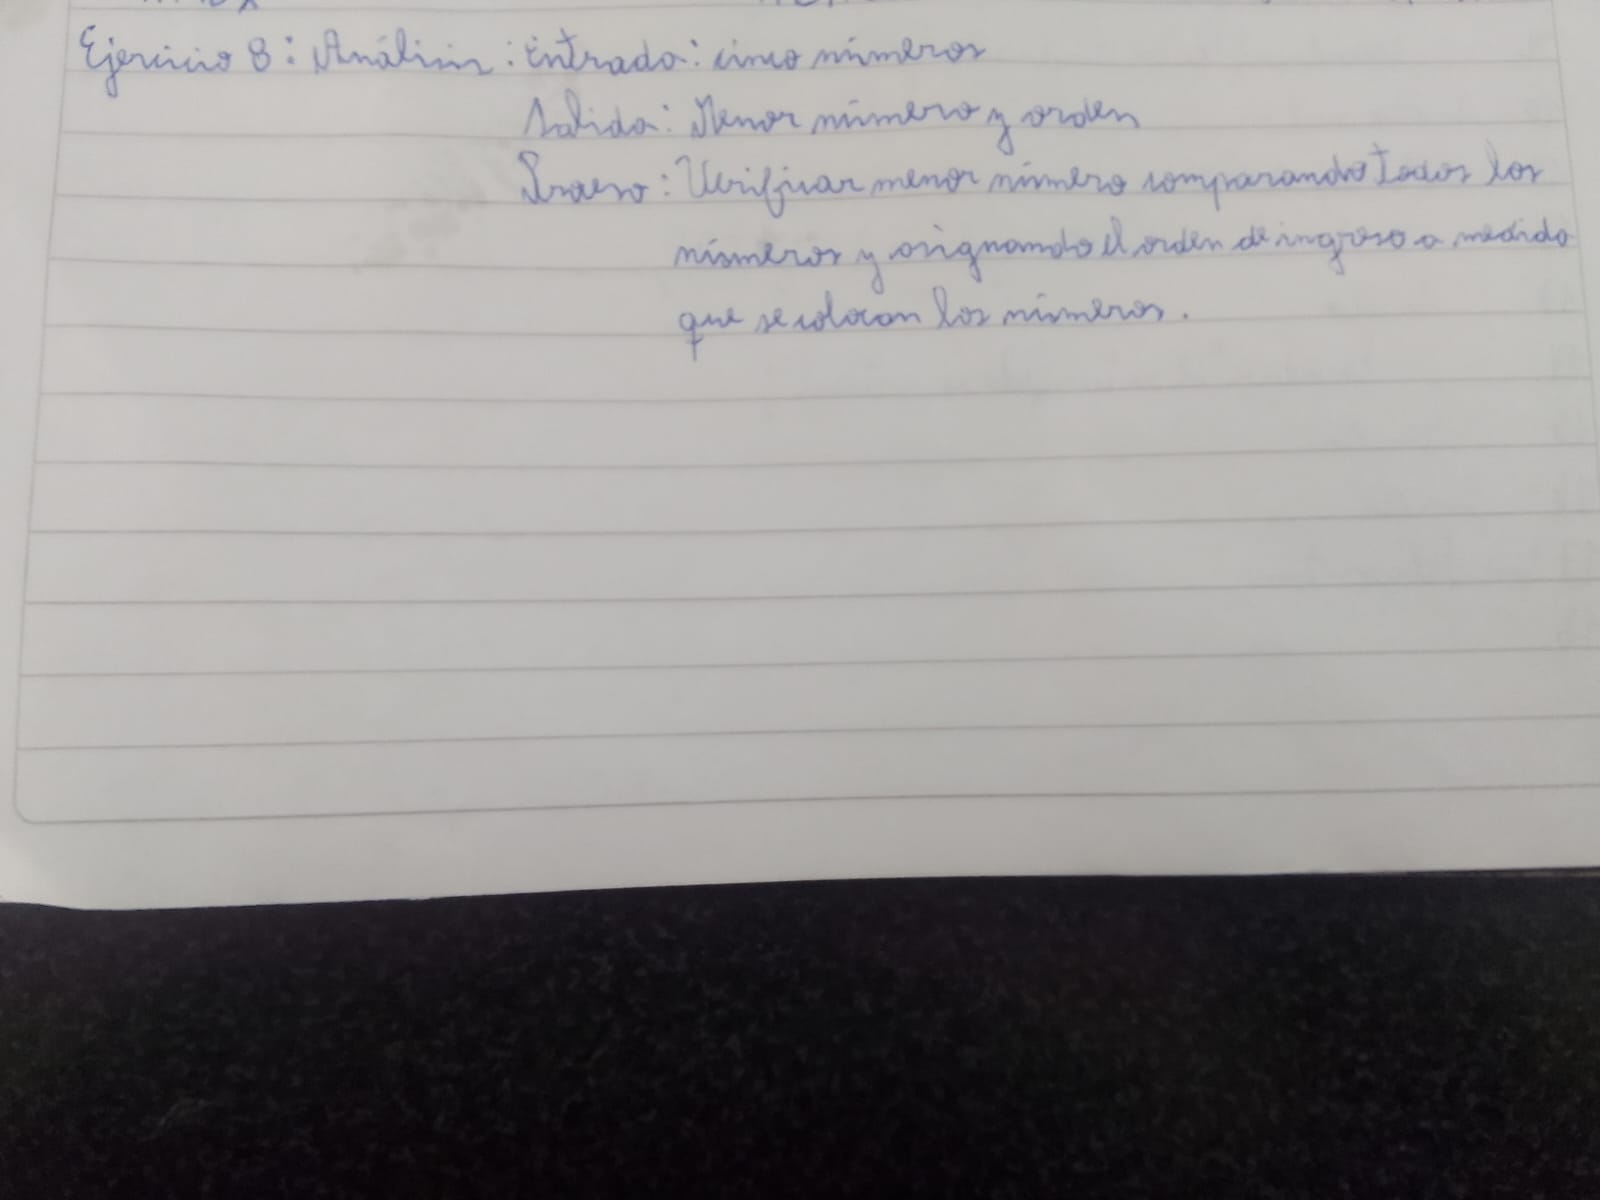 Ejercicio 8: Análisis: Entrada: cinco números
Salida: Menor número y orden
Proceso: Verificar menor número comparando todos los
números y asignando el orden de ingreso a medida
que se colocan los números.